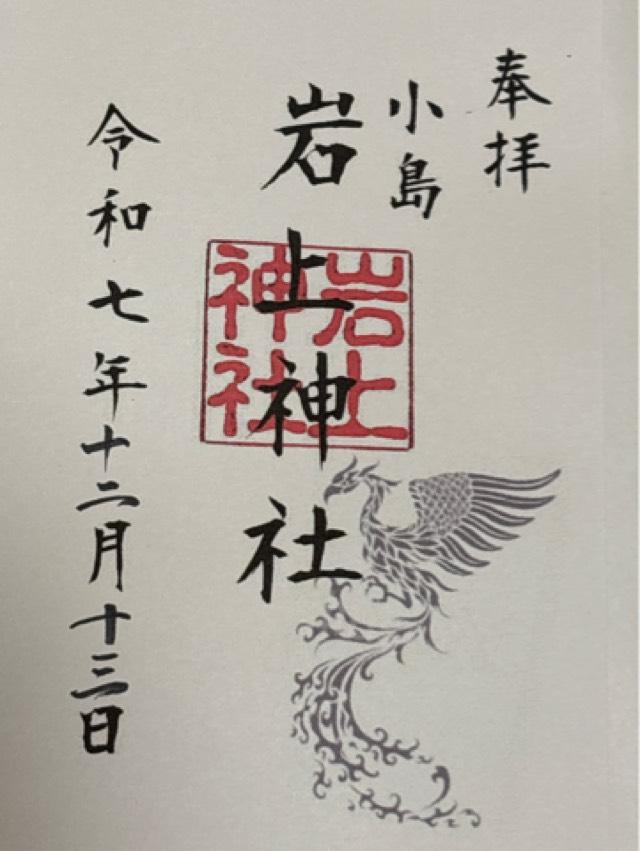 奉拝
小島
岩上神社
岩上
神社
令和七年十二月十三日